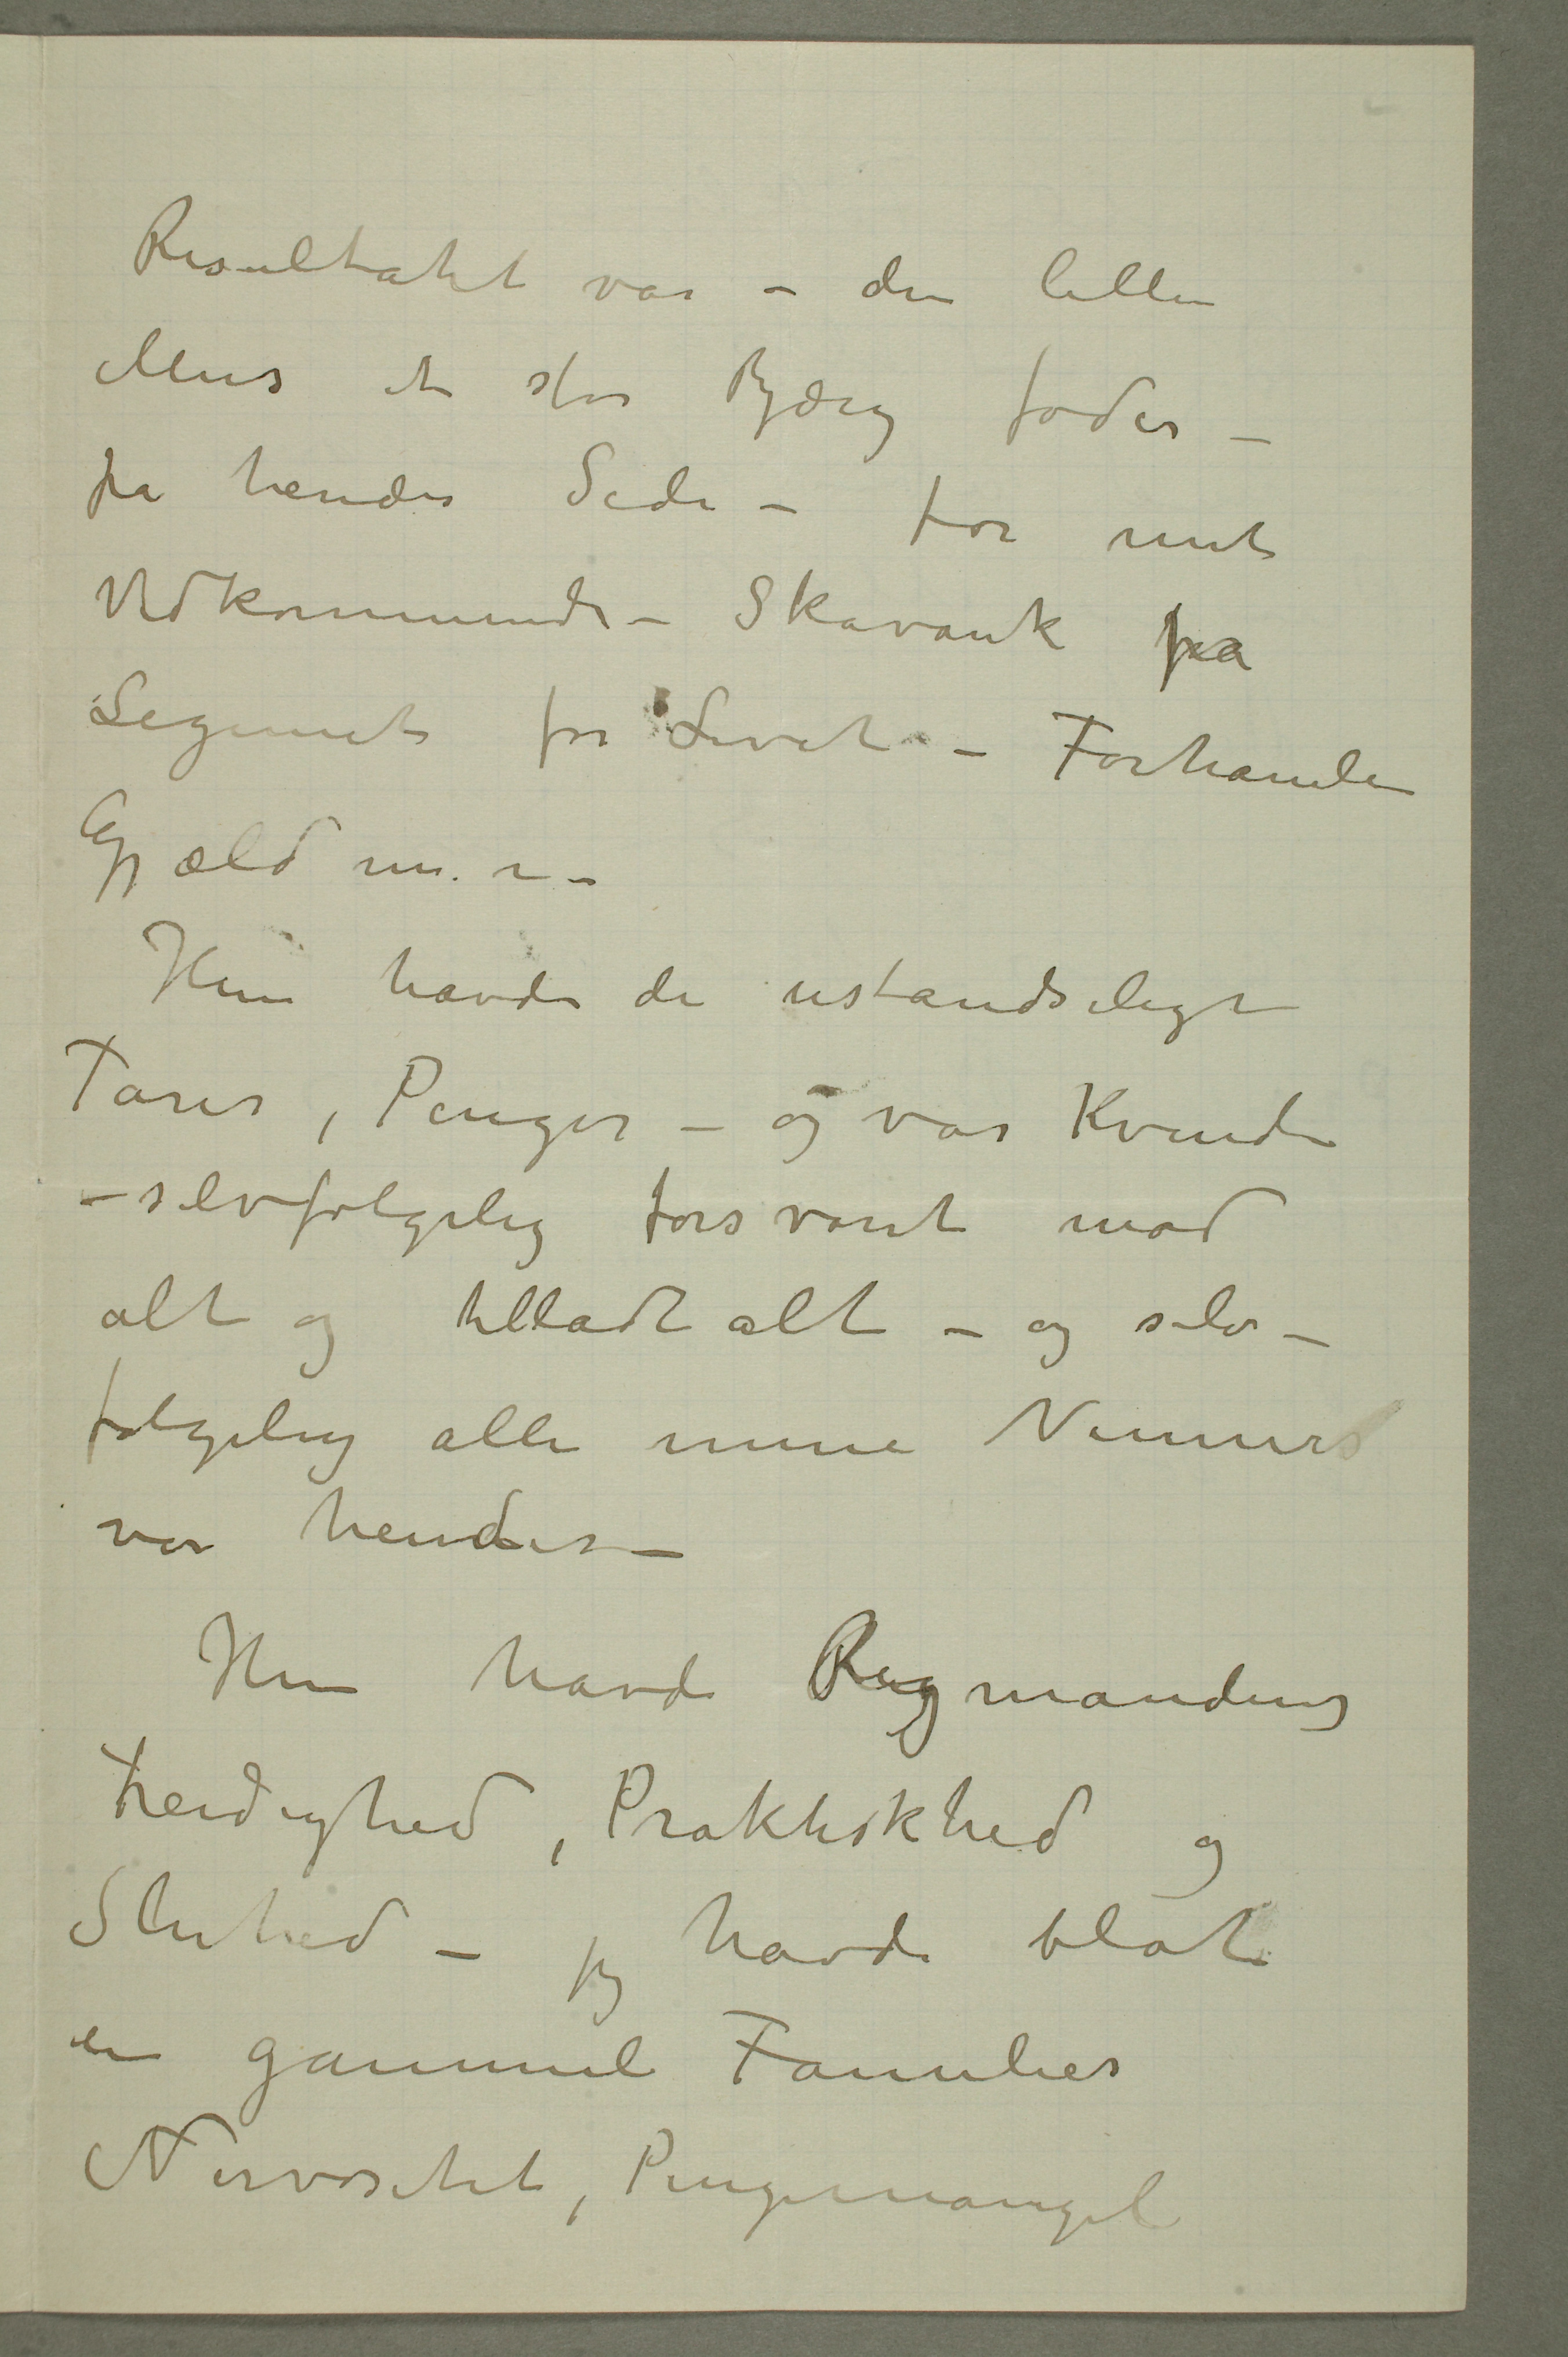 Resultatet var – den lille
Mus et stor Bjærg føder –
pa hendes Side – for mit
Vedkommende – Skavank pa
Legemet for Livet – Forhanelse
Gjæld m. v –
Hun havde de ustandselige
Tarer, Penger – og var Kvinde
– selvfølgelig forsvaret mod
alt og tilladt alt – og selv –
følgelig alle mine Venner
var hendes –
Hun havde Rigmandens
Freidighed, Praktiskhed og
Sluhed – jeg havde blot
en gammel Families
Nervøsitet, Pengemangel